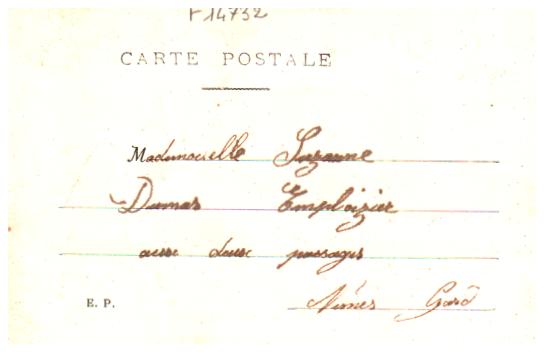 F14732
CARTE POSTALE
Mademoiselle Suzanne
Dumas Emploizier
aux deux passages
E. P.
Nîmes Gard